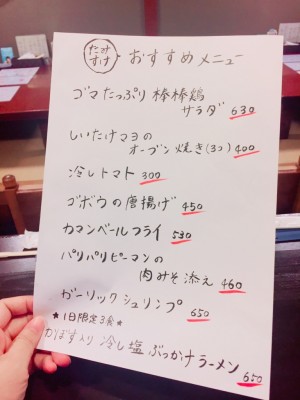 たみ
すけ
おすすめメニュー
ゴマたっぷり棒棒鶏
サラダ 630
しいたけマヨの
オーブン焼き(3コ) 400
冷しトマト 300
ゴボウの唐揚げ 450
カマンベールフライ 530
パリパリピーマンの
肉みそ添え 460
ガーリックシュリンプ 650
★1日限定3食★
かぼす入り 冷し塩ぶっかけラーメン 650